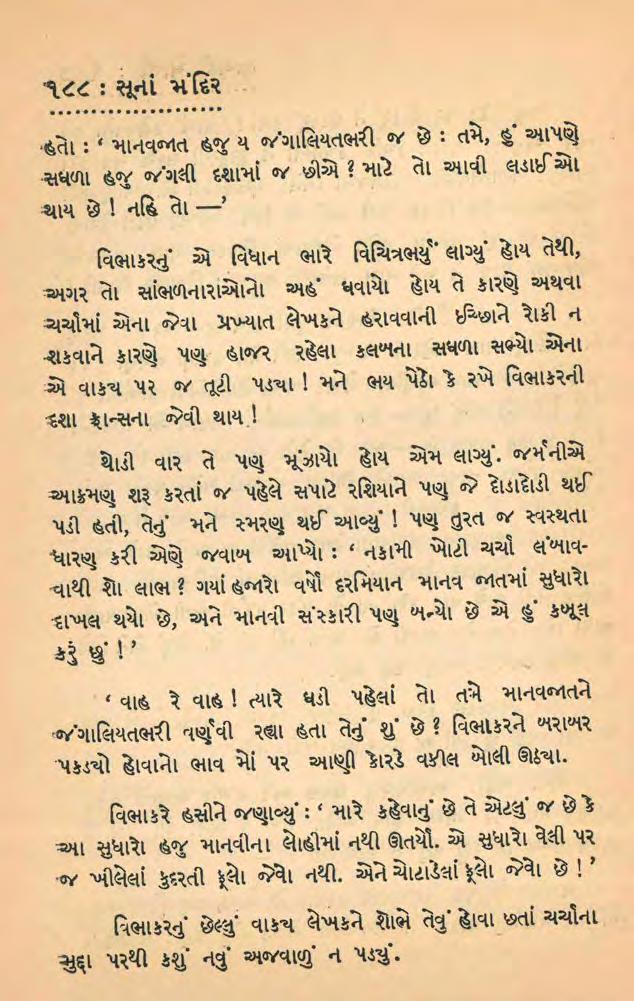 ૧૮૮ : સૂનાં મંદિર
હતો : ‘ માનવજાત હજુ ય જંગાલિયતભરી જ છે : તમે, હું આપણે
સઘળા હજુ જંગલી દશામાં જ છીએ ? માટે તો આવી લડાઈઓ
થાય છે ! નહિ તો —’
વિભાકરનું એ વિધાન ભારે વિચિત્રભર્યું લાગ્યું હોય તેથી,
અગર તો સાંભળનારાઓનો અહં ઘવાયો હોય તે કારણે અથવા
ચર્ચામાં એના જેવા પ્રખ્યાત લેખકને હરાવવાની ઈચ્છાને રોકી ન
શકવાને કારણે પણ હાજર રહેલા કલબના સઘળા સભ્યો એના
એ વાકય પર જ તૂટી પડયા ! મને ભય પેઠો કે રખે વિભાકરની
દશા ફ્રાન્સના જેવી થાય !
થોડી વાર તે પણ મૂંઝાયો હોય એમ લાગ્યું. જર્મનીએ
આક્રમણ શરૂ કરતાં જ પહેલે સપાટે રશિયાને પણ જે દોડાદોડી થઈ
પડી હતી, તેનું મને સ્મરણ થઈ આવ્યું ! પણ તુરત જ સ્વસ્થતા
ધારણ કરી એણે જવાબ આપ્યો : ‘ નકામી ખોટી ચર્ચા લંબાવ-
વાથી શો લાભ ? ગયાં હજારો વર્ષો દરમિયાન માનવ જાતમાં સુધારો
દાખલ થયો છે, અને માનવી સંસ્કારી પણ બન્યો છે એ હું કબૂલ
કરું છું !’
‘ વાહ રે વાહ ! ત્યારે ઘડી પહેલાં તો તમે માનવજાતને
જંગાલિયતભરી વર્ણવી રહ્યા હતા તેનું શું છે ? વિભાકરને બરાબર
પકડયો હોવાનો ભાવ મોં પર આણી કોરડે વકીલ બોલી ઊઠયા.
વિભાકરે હસીને જણાવ્યું : ‘ મારે કહેવાનું છે તે એટલું જ છે કે
આ સુધારો હજુ માનવીના લોહીમાં નથી ઊતર્યો. એ સુધારો વેલી પર
જ ખીલેલાં કુદરતી ફૂલો જેવો નથી. એને ચોટાડેલાં ફૂલો જેવો છે !’
વિભાકરનું છેલ્લું વાકય લેખકને શોભે તેવું હોવા છતાં ચર્ચાના
મુદ્દા પરથી કશું નવું અજવાળું ન પડયું.